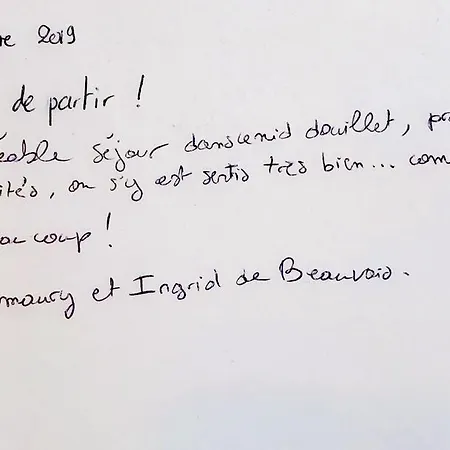 re 2019
de partir !
éable séjour dans ce nid douillet, pr
ités, on s'y est sentis très bien... com
au coup !
maury et Ingrid de Beauvais.